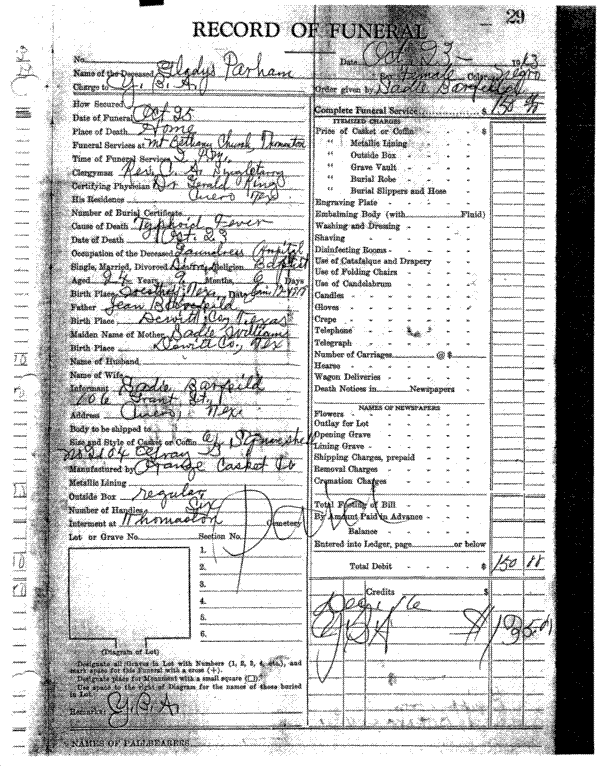 29
RECORD OF FUNERAL
No.
Date Oct 23 19
Name of the Deceased Gladys Parham
Sex Female Color Negro
Charge to Y. B. A.
Order given by Sadie Barfield
How Secured
Complete Funeral Service $ 150
Date of Funeral Oct 25
ITEMIZED CHARGES
Place of Death Home
Price of Casket or Coffin $
Funeral Services at Mt Bethany Church, Thomaston
" Metallic Lining
Time of Funeral Services
" Outside Box
Clergyman Rev.
" Grave Vault
Certifying Physician Dr Gerald King
" Burial Robe
His Residence Cuero Tex
" Burial Slippers and Hose
Number of Burial Certificate
Engraving Plate
Cause of Death Typhoid Fever
Embalming Body (with Fluid)
Date of Death Oct. 23
Washing and Dressing
Occupation of the Deceased Laundress
Shaving
Single, Married, Divorced Religion Baptist
Disinfecting Rooms
Aged 24 Years 9 Months, Days
Use of Catafalque and Drapery
Birth Place Tex, Date Jan.
Use of Folding Chairs
Father
Use of Candelabrum
Birth Place Dewitt Co, Texas
Candles
Maiden Name of Mother Sadie Williams
Gloves
Birth Place Dewitt Co, Tex
Crape
Name of Husband
Telephone
Name of Wife
Telegraph
Informant Sadie Barfield
Number of Carriages @ $
106 Grant St,
Hearse
Address Cuero, Tex
Wagon Deliveries
Body to be shipped to
Death Notices in Newspapers
Size and Style of Casket or Coffin
NAMES OF NEWSPAPERS
Manufactured by Orange Casket Co
Flowers
Metallic Lining
Outlay for Lot
Outside Box regular
Opening Grave
Number of Handles Six
Lining Grave
Interment at Thomaston Cemetery
Shipping Charges, prepaid
Lot or Grave No. Section No.
Removal Charges
1.
Cremation Charges
2.
Total Footing of Bill
3.
By Amount Paid in Advance
4.
Balance
5.
Entered into Ledger, page or below
6.
Total Debit $ 150
Paid
Credits $
(Diagram of Lot)
Designate all Graves in Lot with Numbers (1, 2, 3, 4, etc.), and
mark space for this Funeral with a cross (+).
Designate place for Monument with a small square (□).
Use space to the right of Diagram for the names of those buried
in Lot.
Remarks Y. B. A.
NAMES OF PALLBEARERS